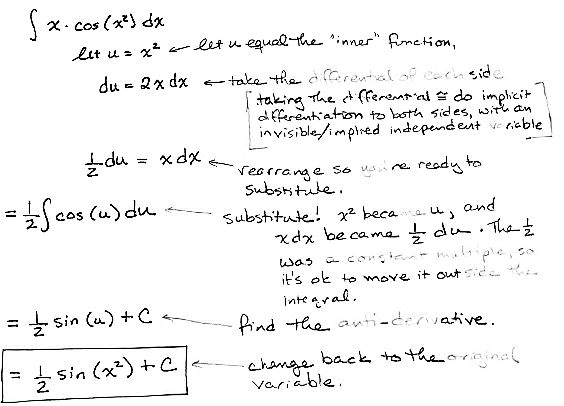 ∫ x · cos(x²) dx
let u = x² ← let u equal the "inner" function,
du = 2x dx ← take the differential of each side
[taking the differential ≅ do implicit
differentiation to both sides, with an
invisible/implied independent variable]
½ du = x dx ← rearrange so you're ready to
substitute.
= ½ ∫ cos(u) du ← substitute! x² became u, and
x dx became ½ du. The ½
was a constant multiple, so
it's ok to move it outside the
integral.
= ½ sin(u) + C ← find the anti-derivative.
= ½ sin(x²) + C ← change back to the original
variable.